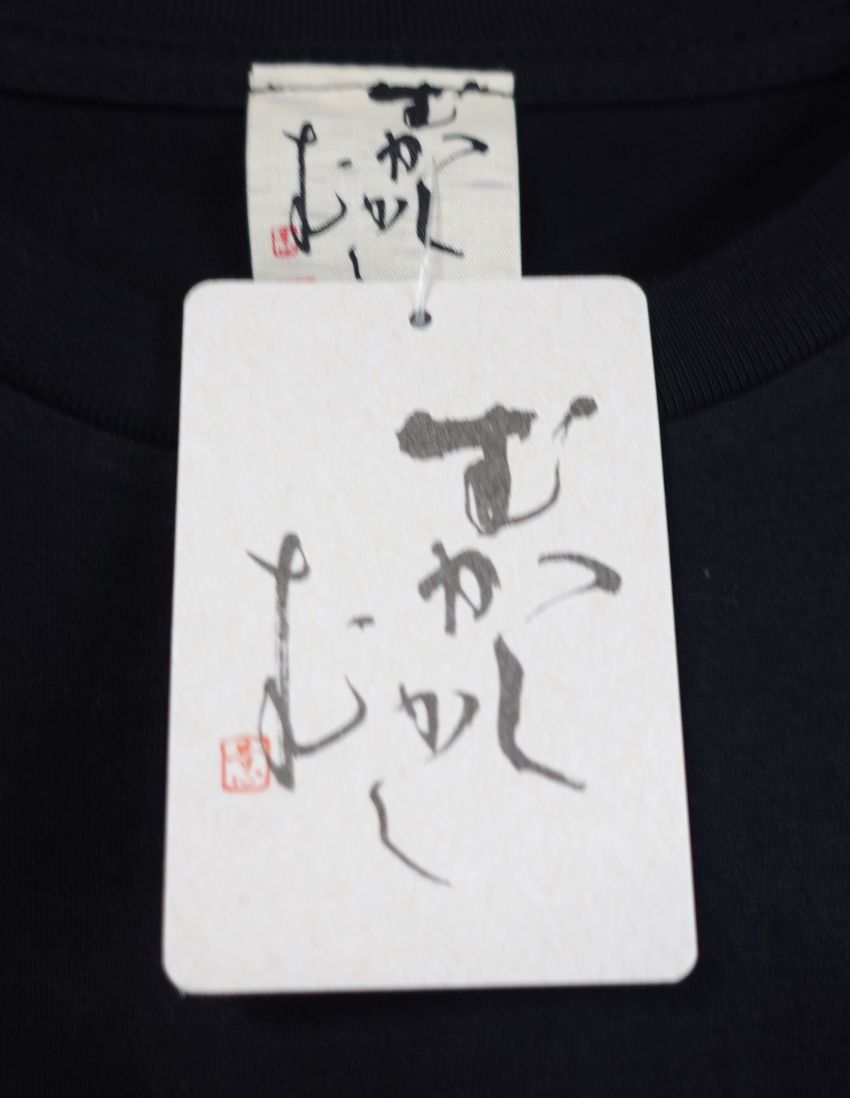 むかし
むかし
むかし
むかし